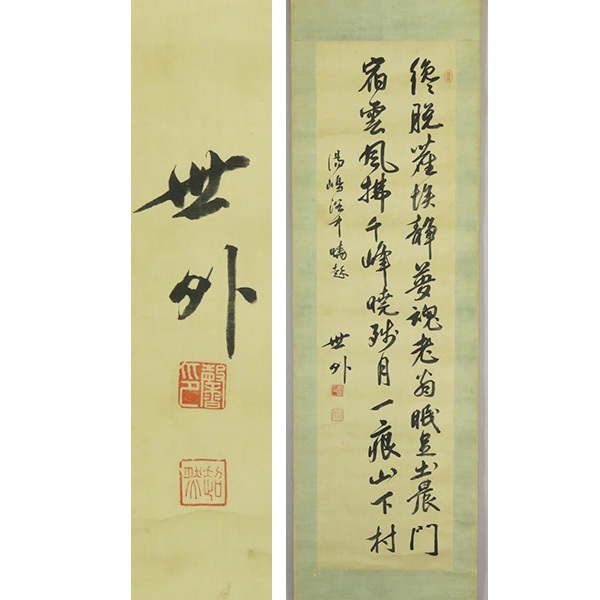 世外
纔脱塵埃静夢魂老翁眠足出晨門
宿雲風拂千峰曉残月一痕山下村
湯嶋
世外